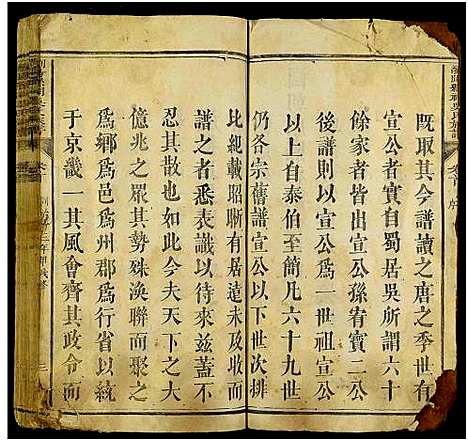 既取其今譜讀之唐之季世有
宣公者實自蜀居吳所謂六十
餘家者皆出宣公孫宥實二公
後譜則以宣公爲一世祖宣公
以上自泰伯至簡凡六十九世
仍各宗舊譜宣公以下世次排
比紀載昭晣有居遠未及收而
譜之者悉表識以待來茲蓋不
忍其散也今夫天下之大
億兆之眾其勢殊渙聯而聚之
爲鄉爲邑爲州郡爲行省以統
于京畿一其風會齊其政令而